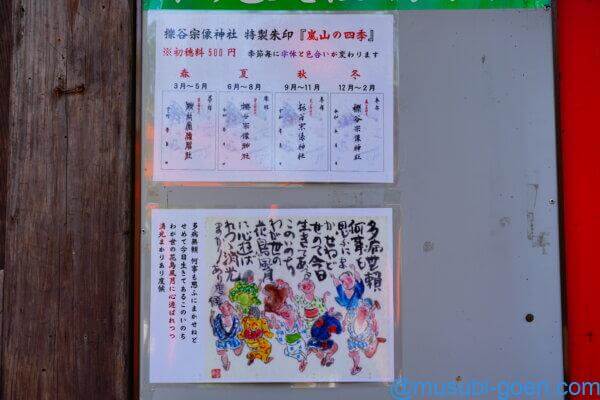 櫟谷宗像神社 特製朱印『嵐山の四季』
※初穂料500円 季節毎に字体と色合いが変わります
春 夏 秋 冬
3月～5月 6月～8月 9月～11月 12月～2月
奉拝 櫟谷宗像神社
奉拝 櫟谷宗像神社
奉拝 櫟谷宗像神社
多病無頼 何事も思ふにまかせねど
せめて今日生きてあるこのいのち
わが世の花鳥風月に心遊ばれつつ
清光まかりあり度候
多病無頼
何事も
思ふにま
かせねど
せめて今日
生きてある
このいのち
わが世の
花鳥風月
に心遊ば
れつつ清光
まかりあり度候
@musubi-goen.com